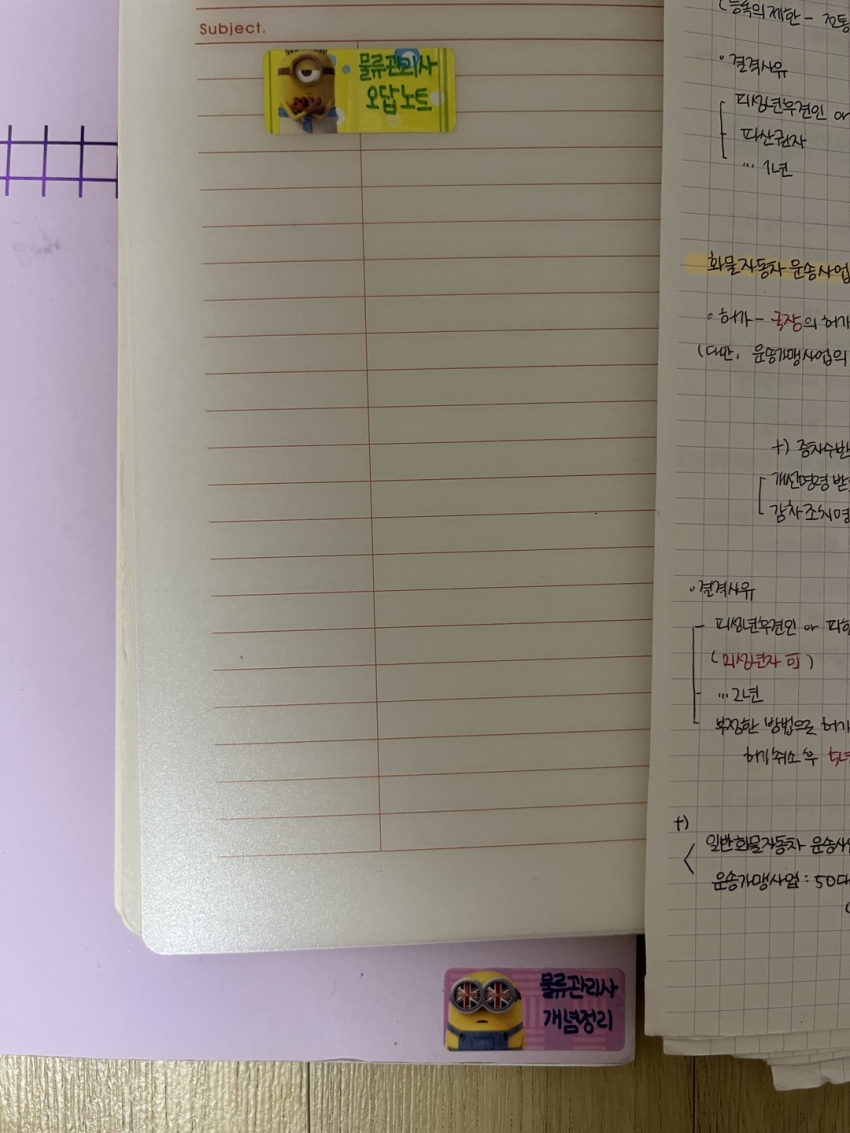 Subject.
물류관리사
오답노트
물류관리사
개념정리
(등록의 제한 -
• 결격사유
피성년후견인 or
파산권자
... 1년
화물자동차 운송사업
• 허가 - 국장의 허가
(다만, 운송가맹사업의
+) 증차수반
개선명령 받
감차조치명
• 결격사유
피성년후견인 or 파산
(미성년자 可)
... 2년
부정한 방법으로 허가
허가취소 후 5년
+)
일반화물자동차 운송사업
운송가맹사업 : 50대